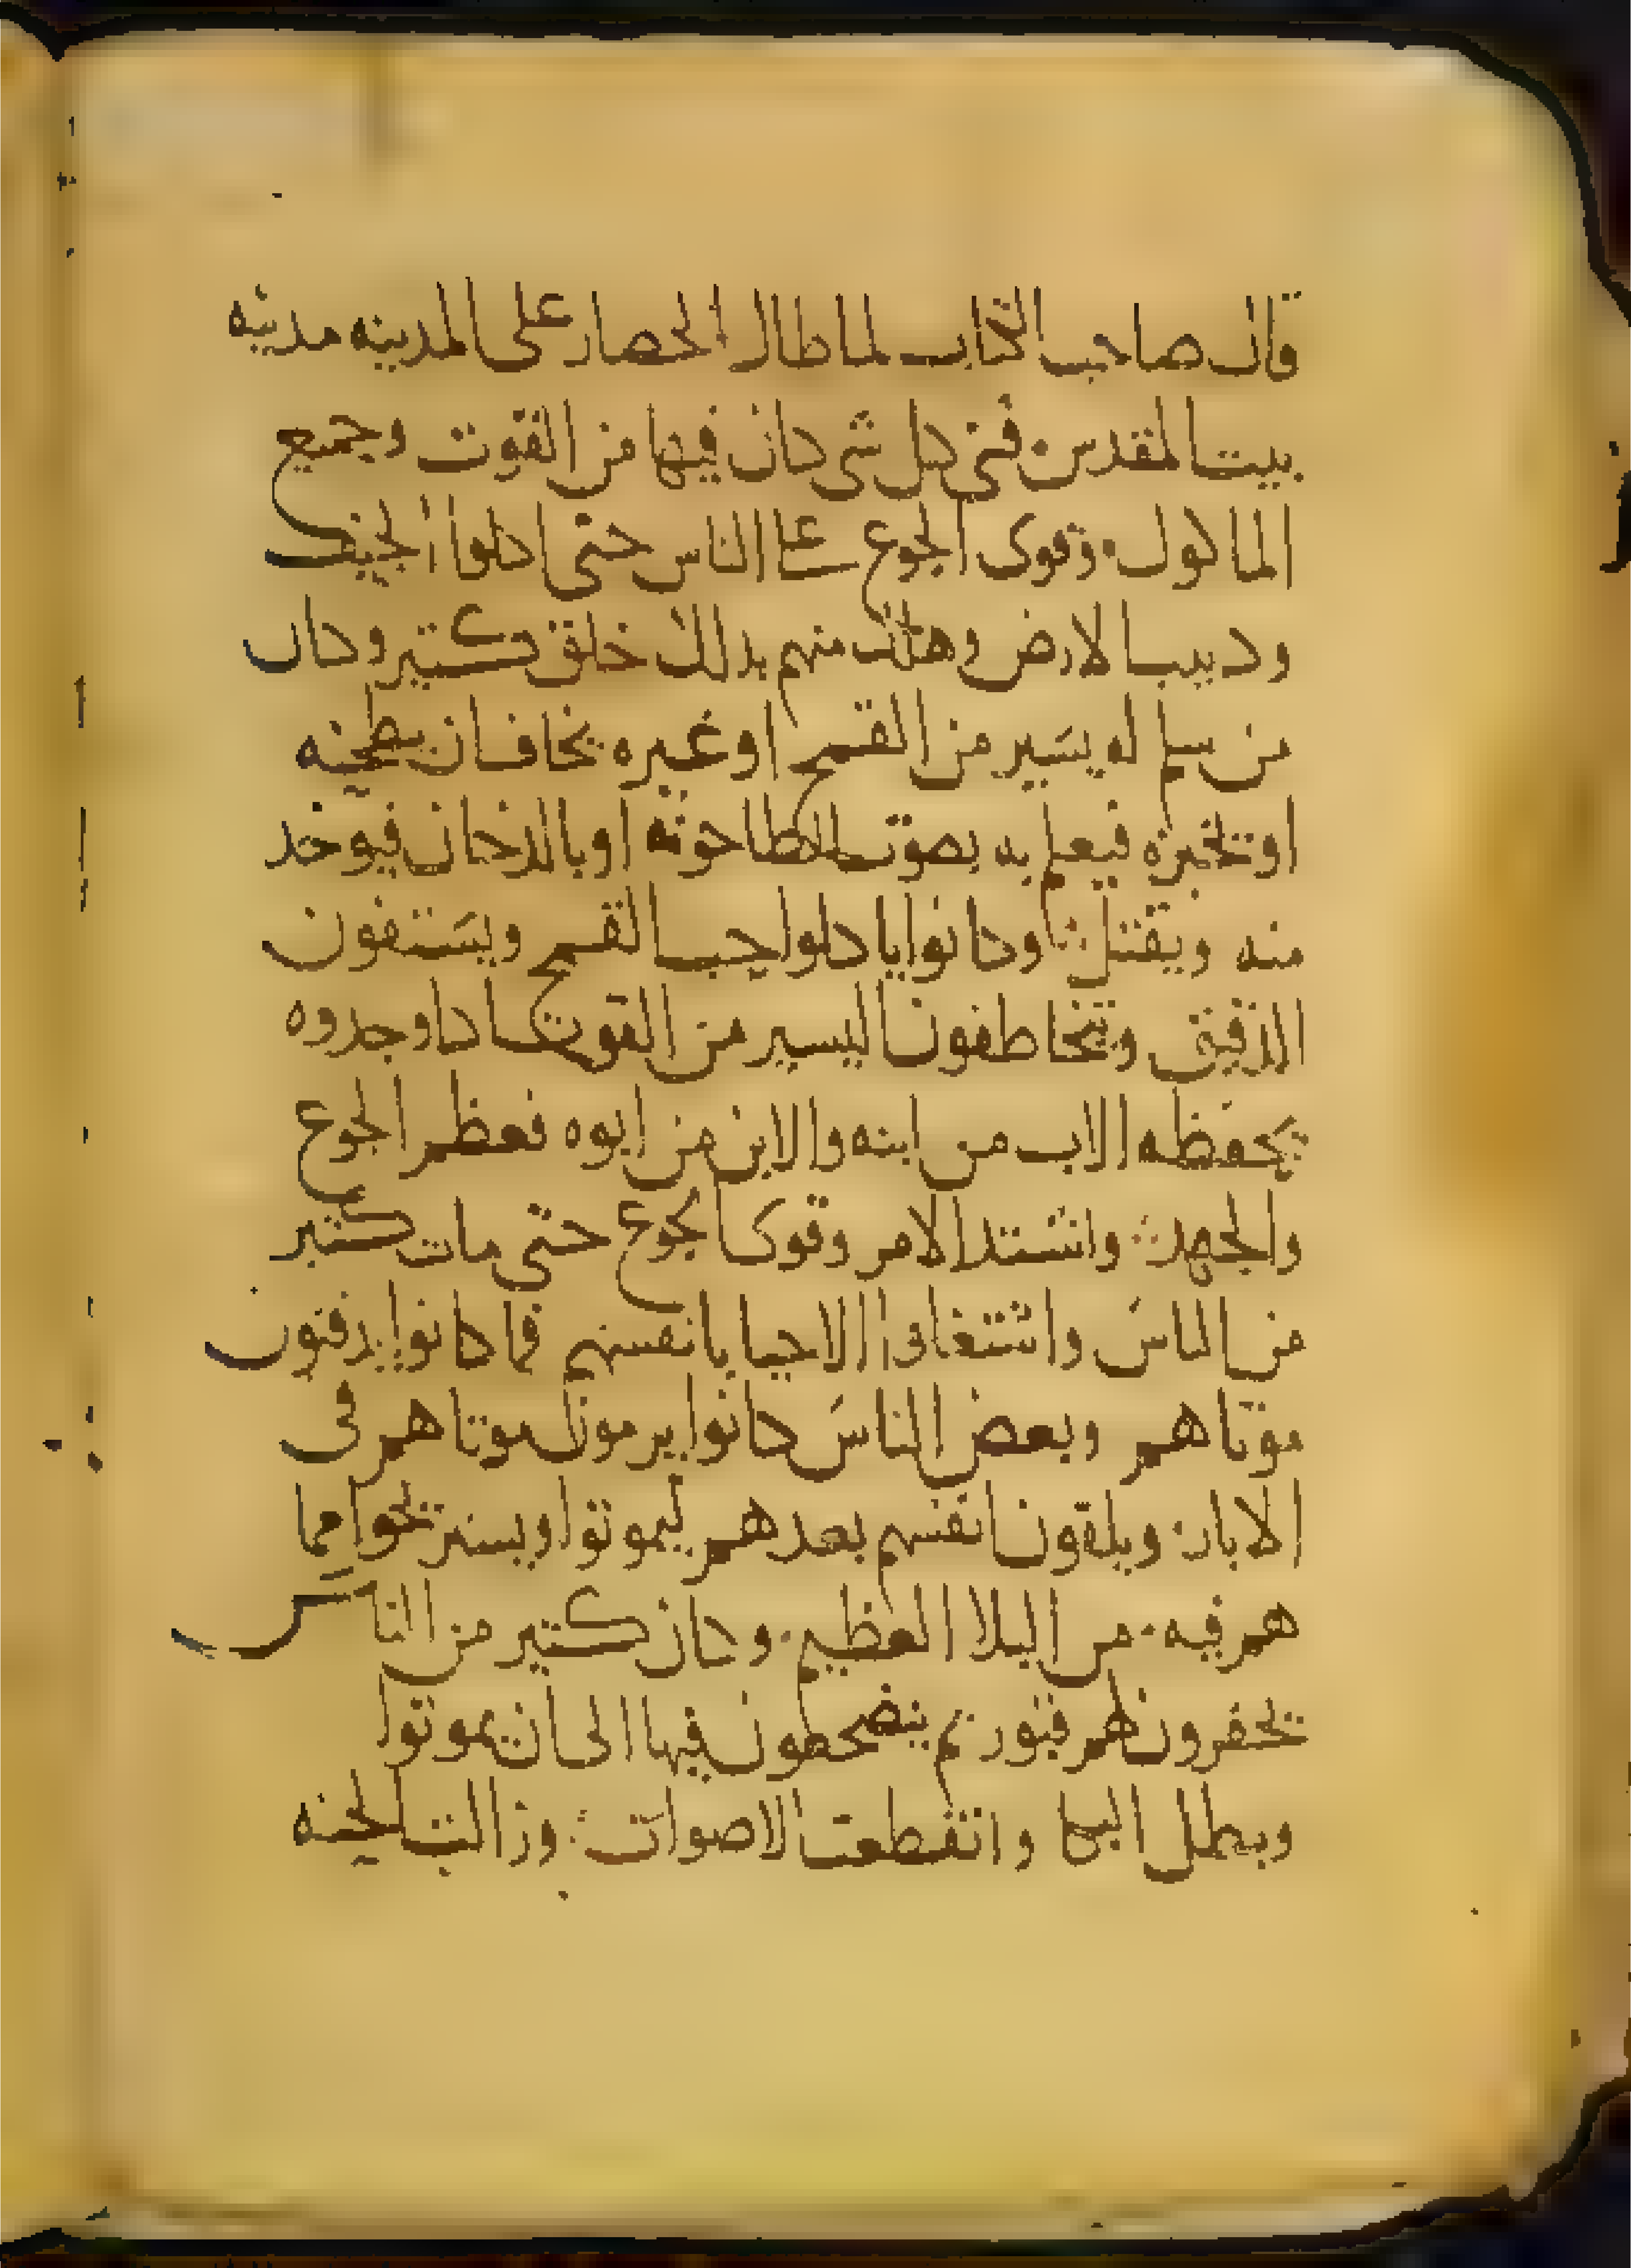 قال صاحب الكتاب لما طال الحصار على المدينه مدينه
بيت المقدس فني كل شي كان فيها من القوت وجميع
الماكول وقوى الجوع على الناس حتى اكلوا الجيف
ودبيب الارض وهلك منهم بدلك خلق كتير وكان
من سلم له يسير من القمح او غيره يخاف ان يطحنه
او يخبزه فيعلم به بصوت الطاحونه او بالدخان فيوخد
منه ويقتل وكانوا ياكلوا حب القمح ويستفون
الدقيق ويتخاطفون اليسير من القوت ادا وجدوه
يحفظه الاب من ابنه والابن من ابوه فعظم الجوع
والجهد واشتد الامر وقوى الجوع حتى مات كتير
من الناس واشتغلوا الاحيا بانفسهم فما كانوا يدفنون
موتاهم وبعض الناس كانوا يرمون موتاهم في
الابار ويلقون انفسهم بعدهم ليموتوا ويستريحوا مما
هم فيه من البلا العظيم وكان كتير من الناس
يحفرون لهم قبور تم ينضجعون فيها الى ان يموتوا
وبطل البكا وانقطعت الاصوات وزالت المحنه